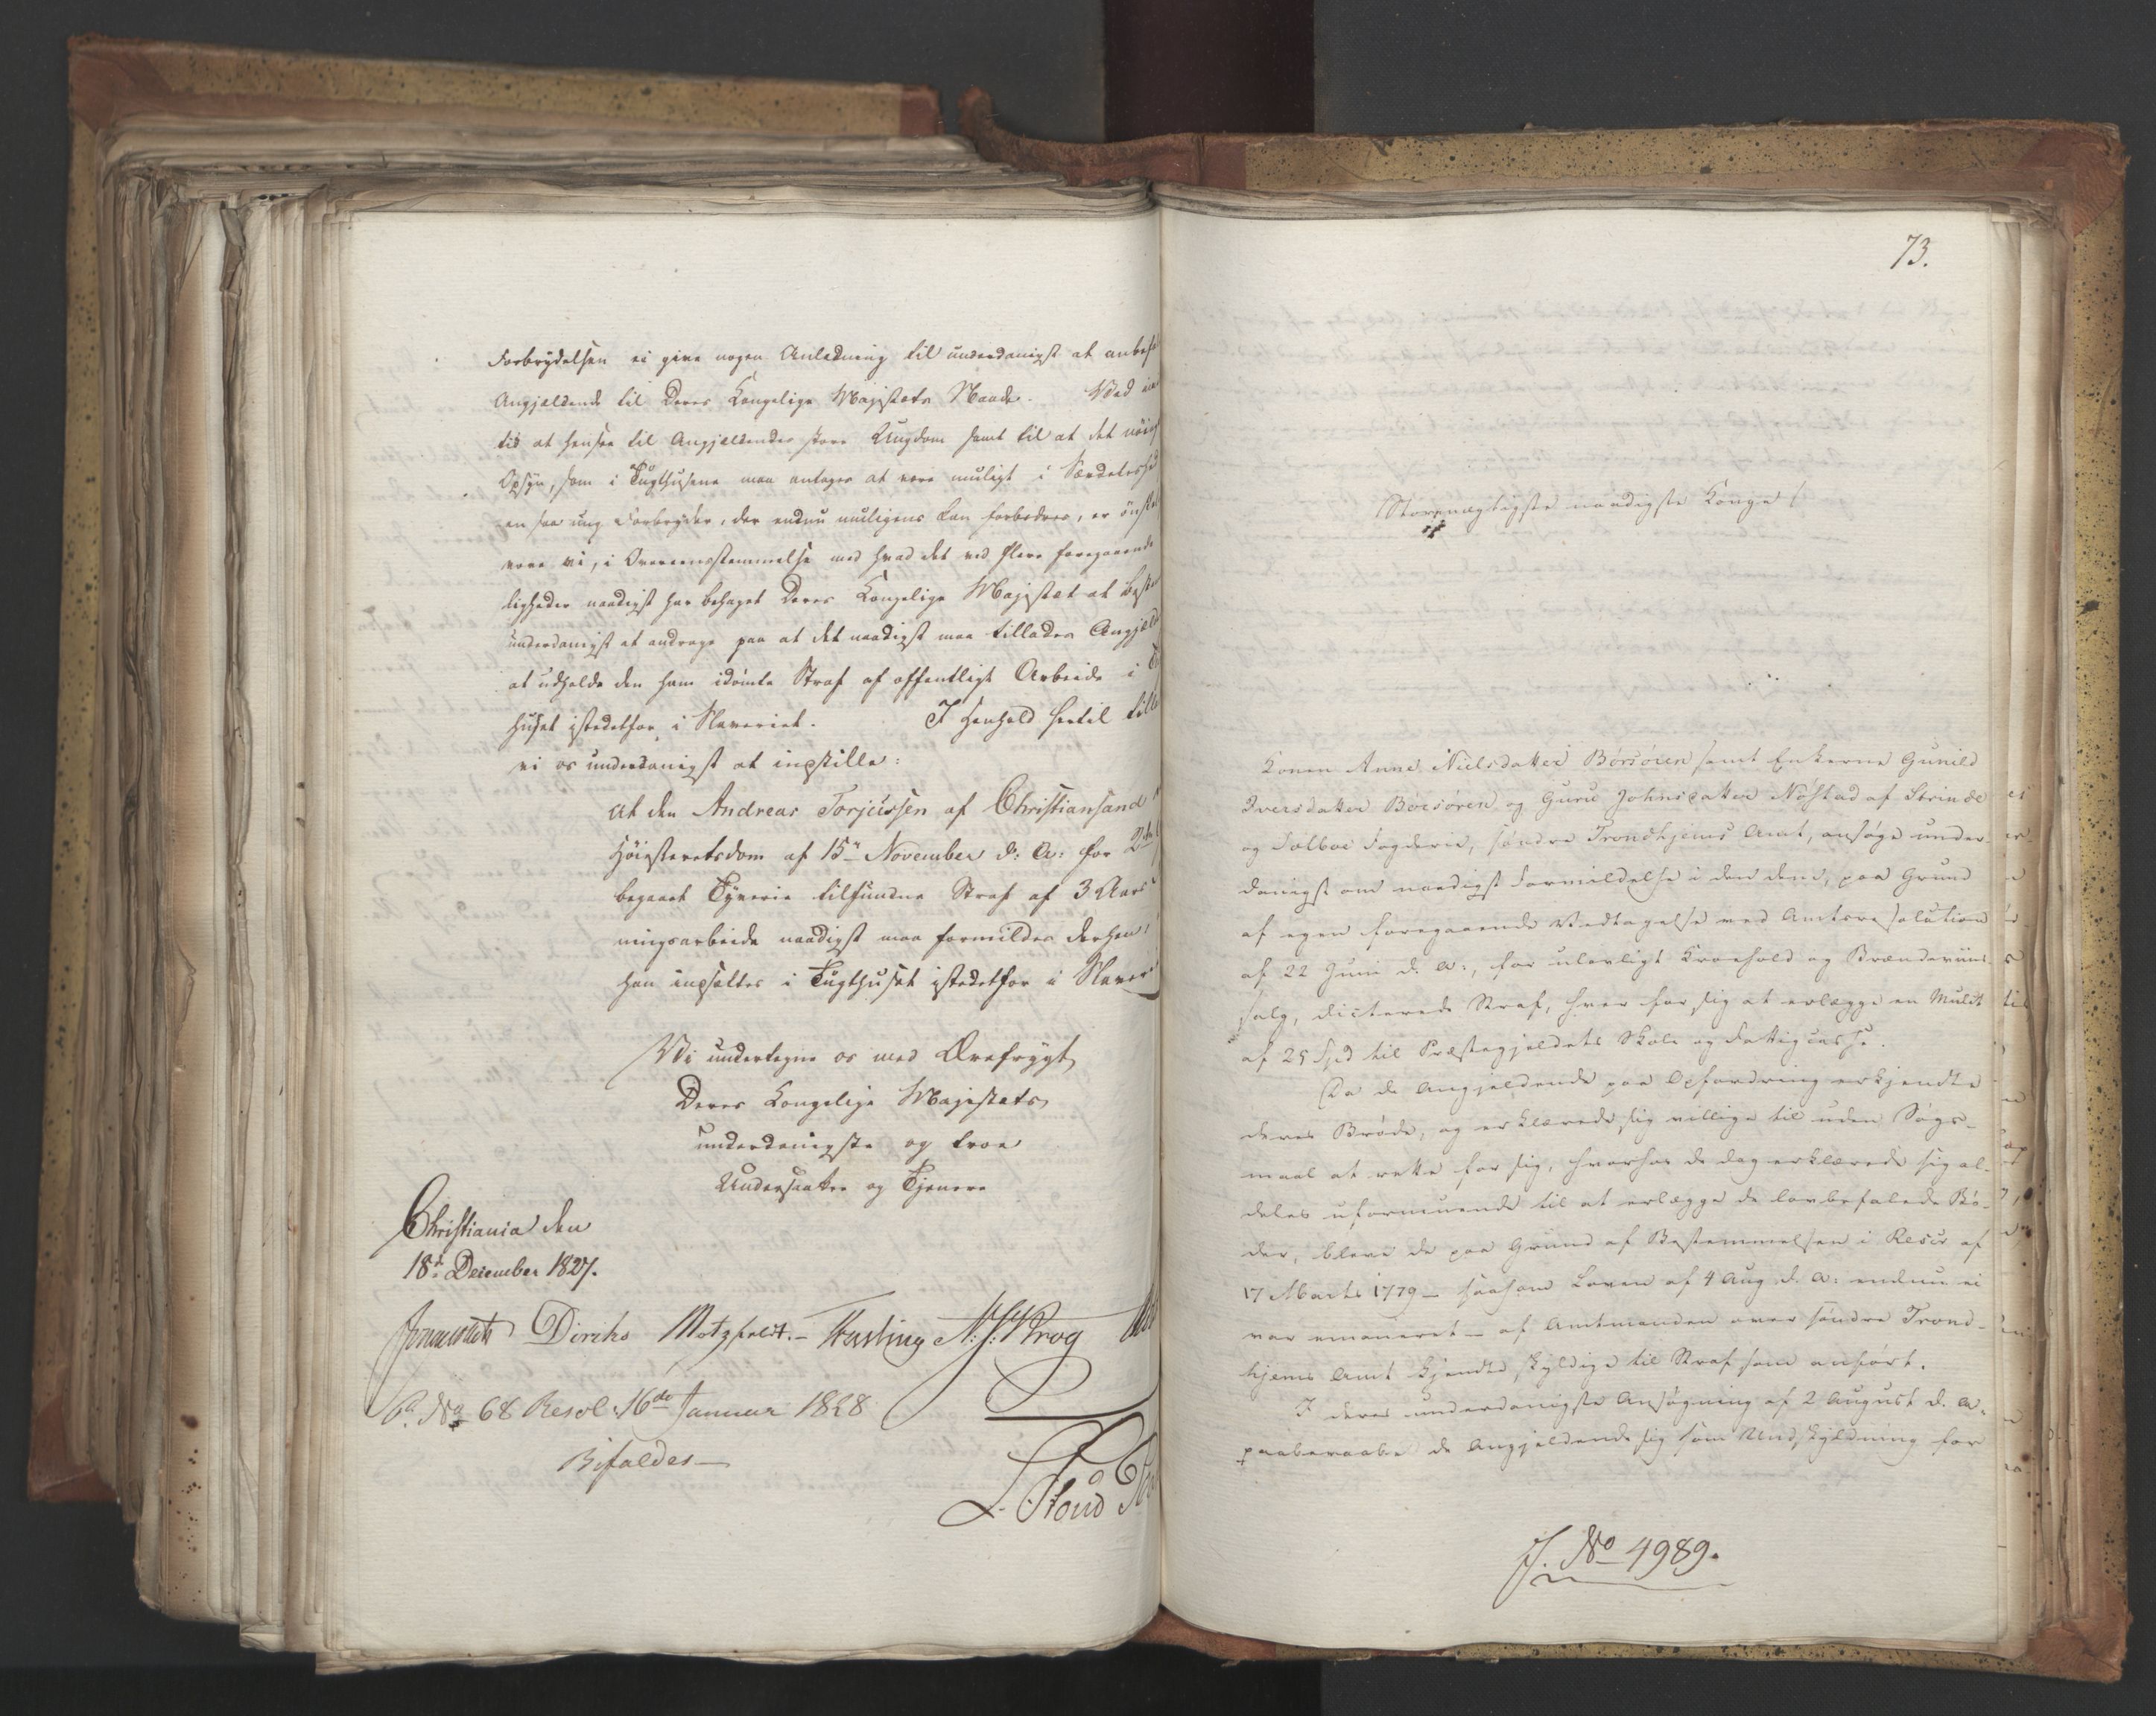 Forbrydelsen ei give nogen Anledning til underdanigst at anbefa
Angjældende til Deres Kongelige Majestæts Naade. Ved im
tid at hensee til Angjældendes store Ungdom samt til at det nöiag
Opsyn, som i Tugthusene maa antages at være muligt i Særdeleshed
en saa ung Forbryder, der endnu muligens kan forbedres, er önskel
vove vi, i Overeensstemmelse med hvad det ved flere foregaaende
ligheder naadigst har behaget Deres Kongelige Majestæt at beste
underdanigst at andrage paa at det naadigst maa tillades Angjæld
at udholde den ham idömte Straf af offentligt Arbeide i T
huset istedetfor i Slaveriet. I Henhold hertil till
vi os underdanigst at indstille:
At den Andreas Torjussen af Christiansand
Höiesteretsdom af 15de November d: A: for 2den
begaaet Tyverie tilfundne Straf af 3 Aars
ningsarbeide naadigst maa formildes derhen
han indsættes i Tugthuset istedetfor i Slaver
Vi undertegne os med Ærefrygt
Deres Kongelige Majestæts
underdanigste og troe
Undersaatter og Tjenere
Christiania den
18de December 1827.
Diriks Motzfeldt. Fasting Krog
No 68 Resol. 16de Januar 1828
Bifaldes
L. Stoud
73.
Stormægtigste naadigste Konge!
Konen Anne Nielsdatter Börsören samt Enkerne Gunild
Iversdatter Börsören og Guru Johnsdatter Nöstad af Strinde
og Sælboe Fogderie, söndre Trondhjems Amt, ansöge under-
danigst om naadigst Formildelse i den dem, paa Grund
af egen foregaaende Vedtagelse ved Amtsresolution
af 22 Juni d. A:, for ulovligt Kroehold og Brændeviins-
salg, dicterede Straf, hver for sig at erlægge en Mulct
af 25 Spd til Præstegjeldets Skole og Fattigcasse.
Da de Angjeldende paa Opfordring erkjendte
deres Bröde, og erklærede sig villige til uden Sögs-
maal at rette for sig, hvorhos de dog erklærede sig al-
deles uformuende til at erlægge de lovbefalede Bö-
der, bleve de paa Grund af Bestemmelsen i Rescr af
17 Marts 1779 - saasom Loven af 4 Aug d. A: endnu ei
var emaneret - af Amtmanden over söndre Trond-
hjems Amt kjendte skyldige til Straf som anfört.
I deres underdanigste Ansögning af 2 August d. A.
paaberaabe de Angjeldende sig som Undskyldning for
J. No 4989.